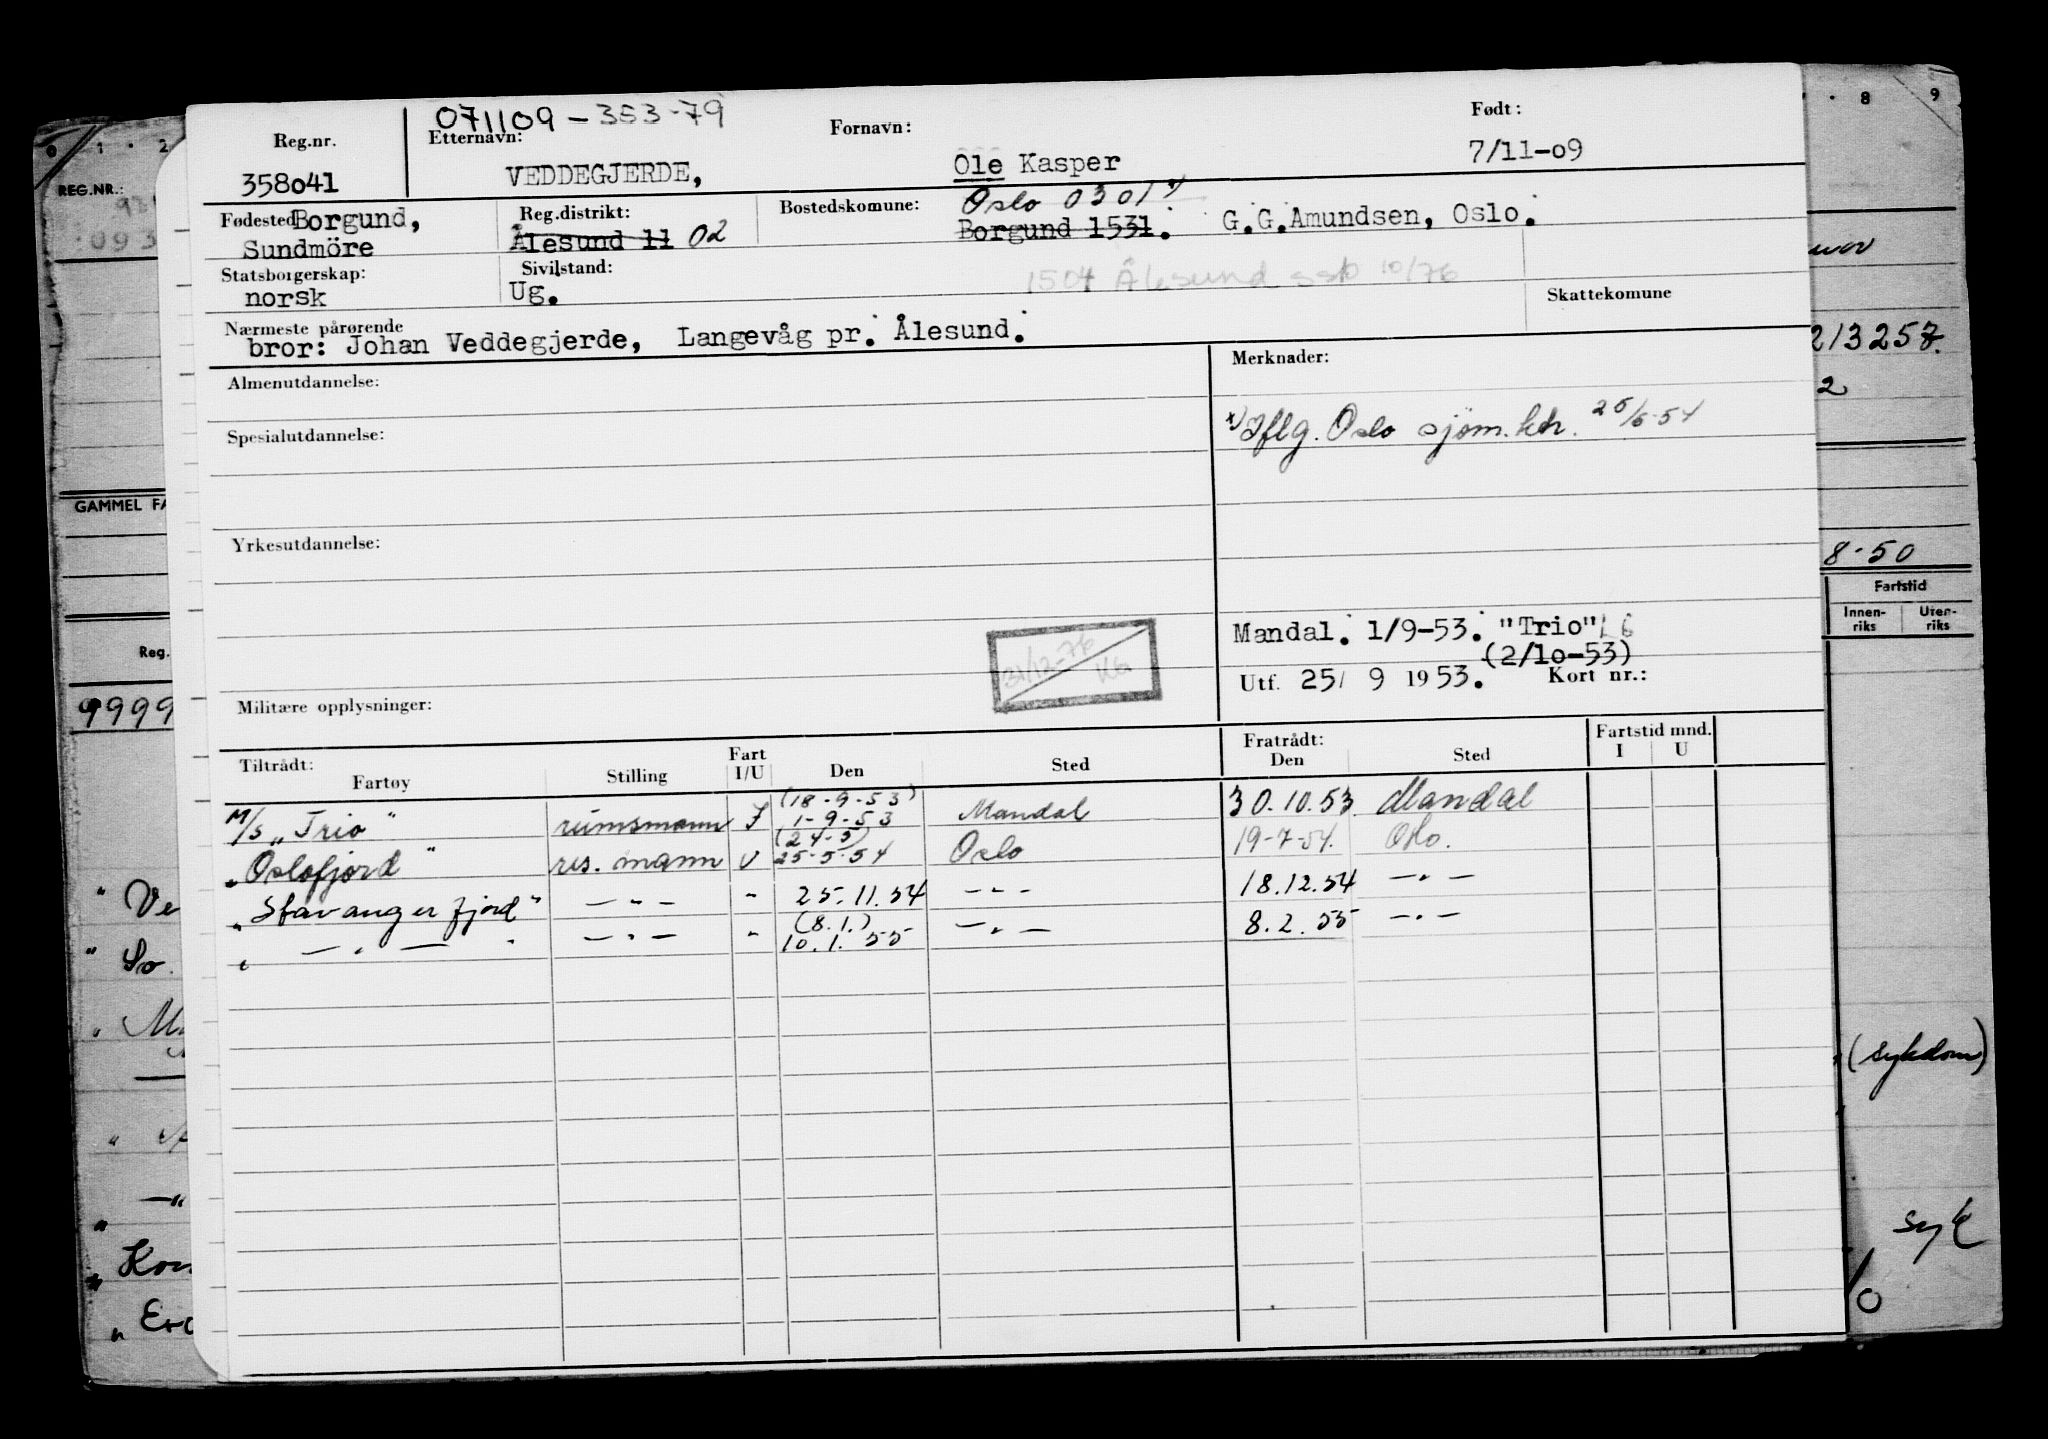 071109-353-79
Reg.nr. Etternavn: Fornavn: Født:
358041 VEDDEGJERDE, Ole Kasper 7/11-09
Fødested Borgund, Reg.distrikt: Bostedskomune: Oslo 0301
Sundmöre Ålesund 11 02 Borgund 1531. G.G.Amundsen, Oslo.
Statsborgerskap: Sivilstand: 1504 Ålesund ssb 10/76
norsk Ug. Skattekomune
Nærmeste pårørende
bror: Johan Veddegjerde, Langevåg pr. Ålesund.
Almenutdannelse: Merknader:
x) Iflg. Oslo sjøm.ktr.
Spesialutdannelse:
Yrkesutdannelse:
Mandal. 1/9-53. "Trio"
(2/10-53)
31/12-76
Utf. 25/ 9 1953. Kort nr.:
Militære opplysninger:
Tiltrådt: Fart Fratrådt: Fartstid mnd.
Fartøy Stilling I/U Den Sted Den Sted I U
(18-9-53)
M/S "Trio" rumsmann I 1-9-53 Mandal 30.10.53 Mandal
(24-5)
"Oslofjord" res. mann U 25-5-54 Oslo 19-7-54. Oslo.
"Stavangerfjord" —"— " 25.11.54 —"— 18.12.54 —"—
(8.1.)
" —"— " —"— " 10.1.55 —"— 8.2.55 —"—
REG.NR.:
GAMMEL FA
Reg.
9999
" Ve
" So
" Kon
213257.
2
8-50
Fartstid
Innen-
riks
Uten-
riks
(sykdom)
syk
8 9
0 1 2